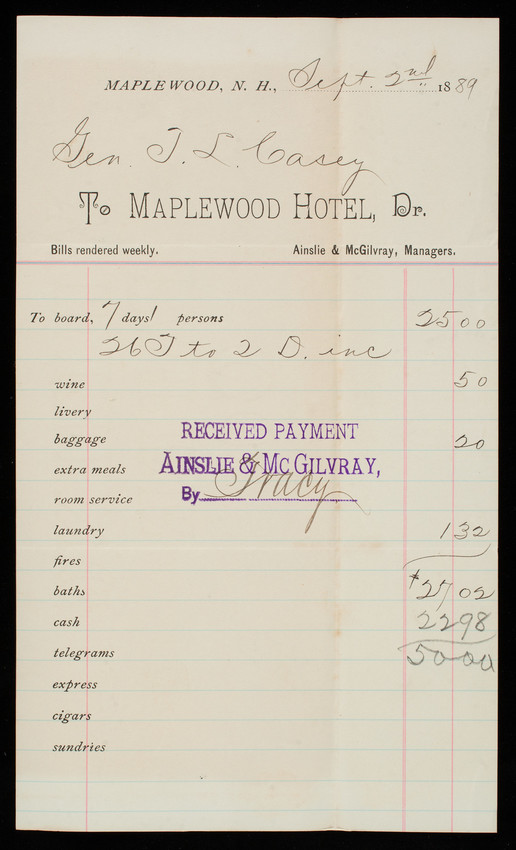 MAPLEWOOD, N. H., Sept. 2nd 1889
Gen. T. L. Casey
To MAPLEWOOD HOTEL, Dr.
Bills rendered weekly. Ainslie & McGilvray, Managers.
To board, 7 days 1 persons 25 00
26 T to 2 D. inc
wine 50
livery
RECEIVED PAYMENT
baggage 20
AINSLIE & MC GILVRAY,
extra meals
By Tracy
room service
laundry 1 32
fires
baths $27 02
cash 22 98
telegrams 50 00
express
cigars
sundries